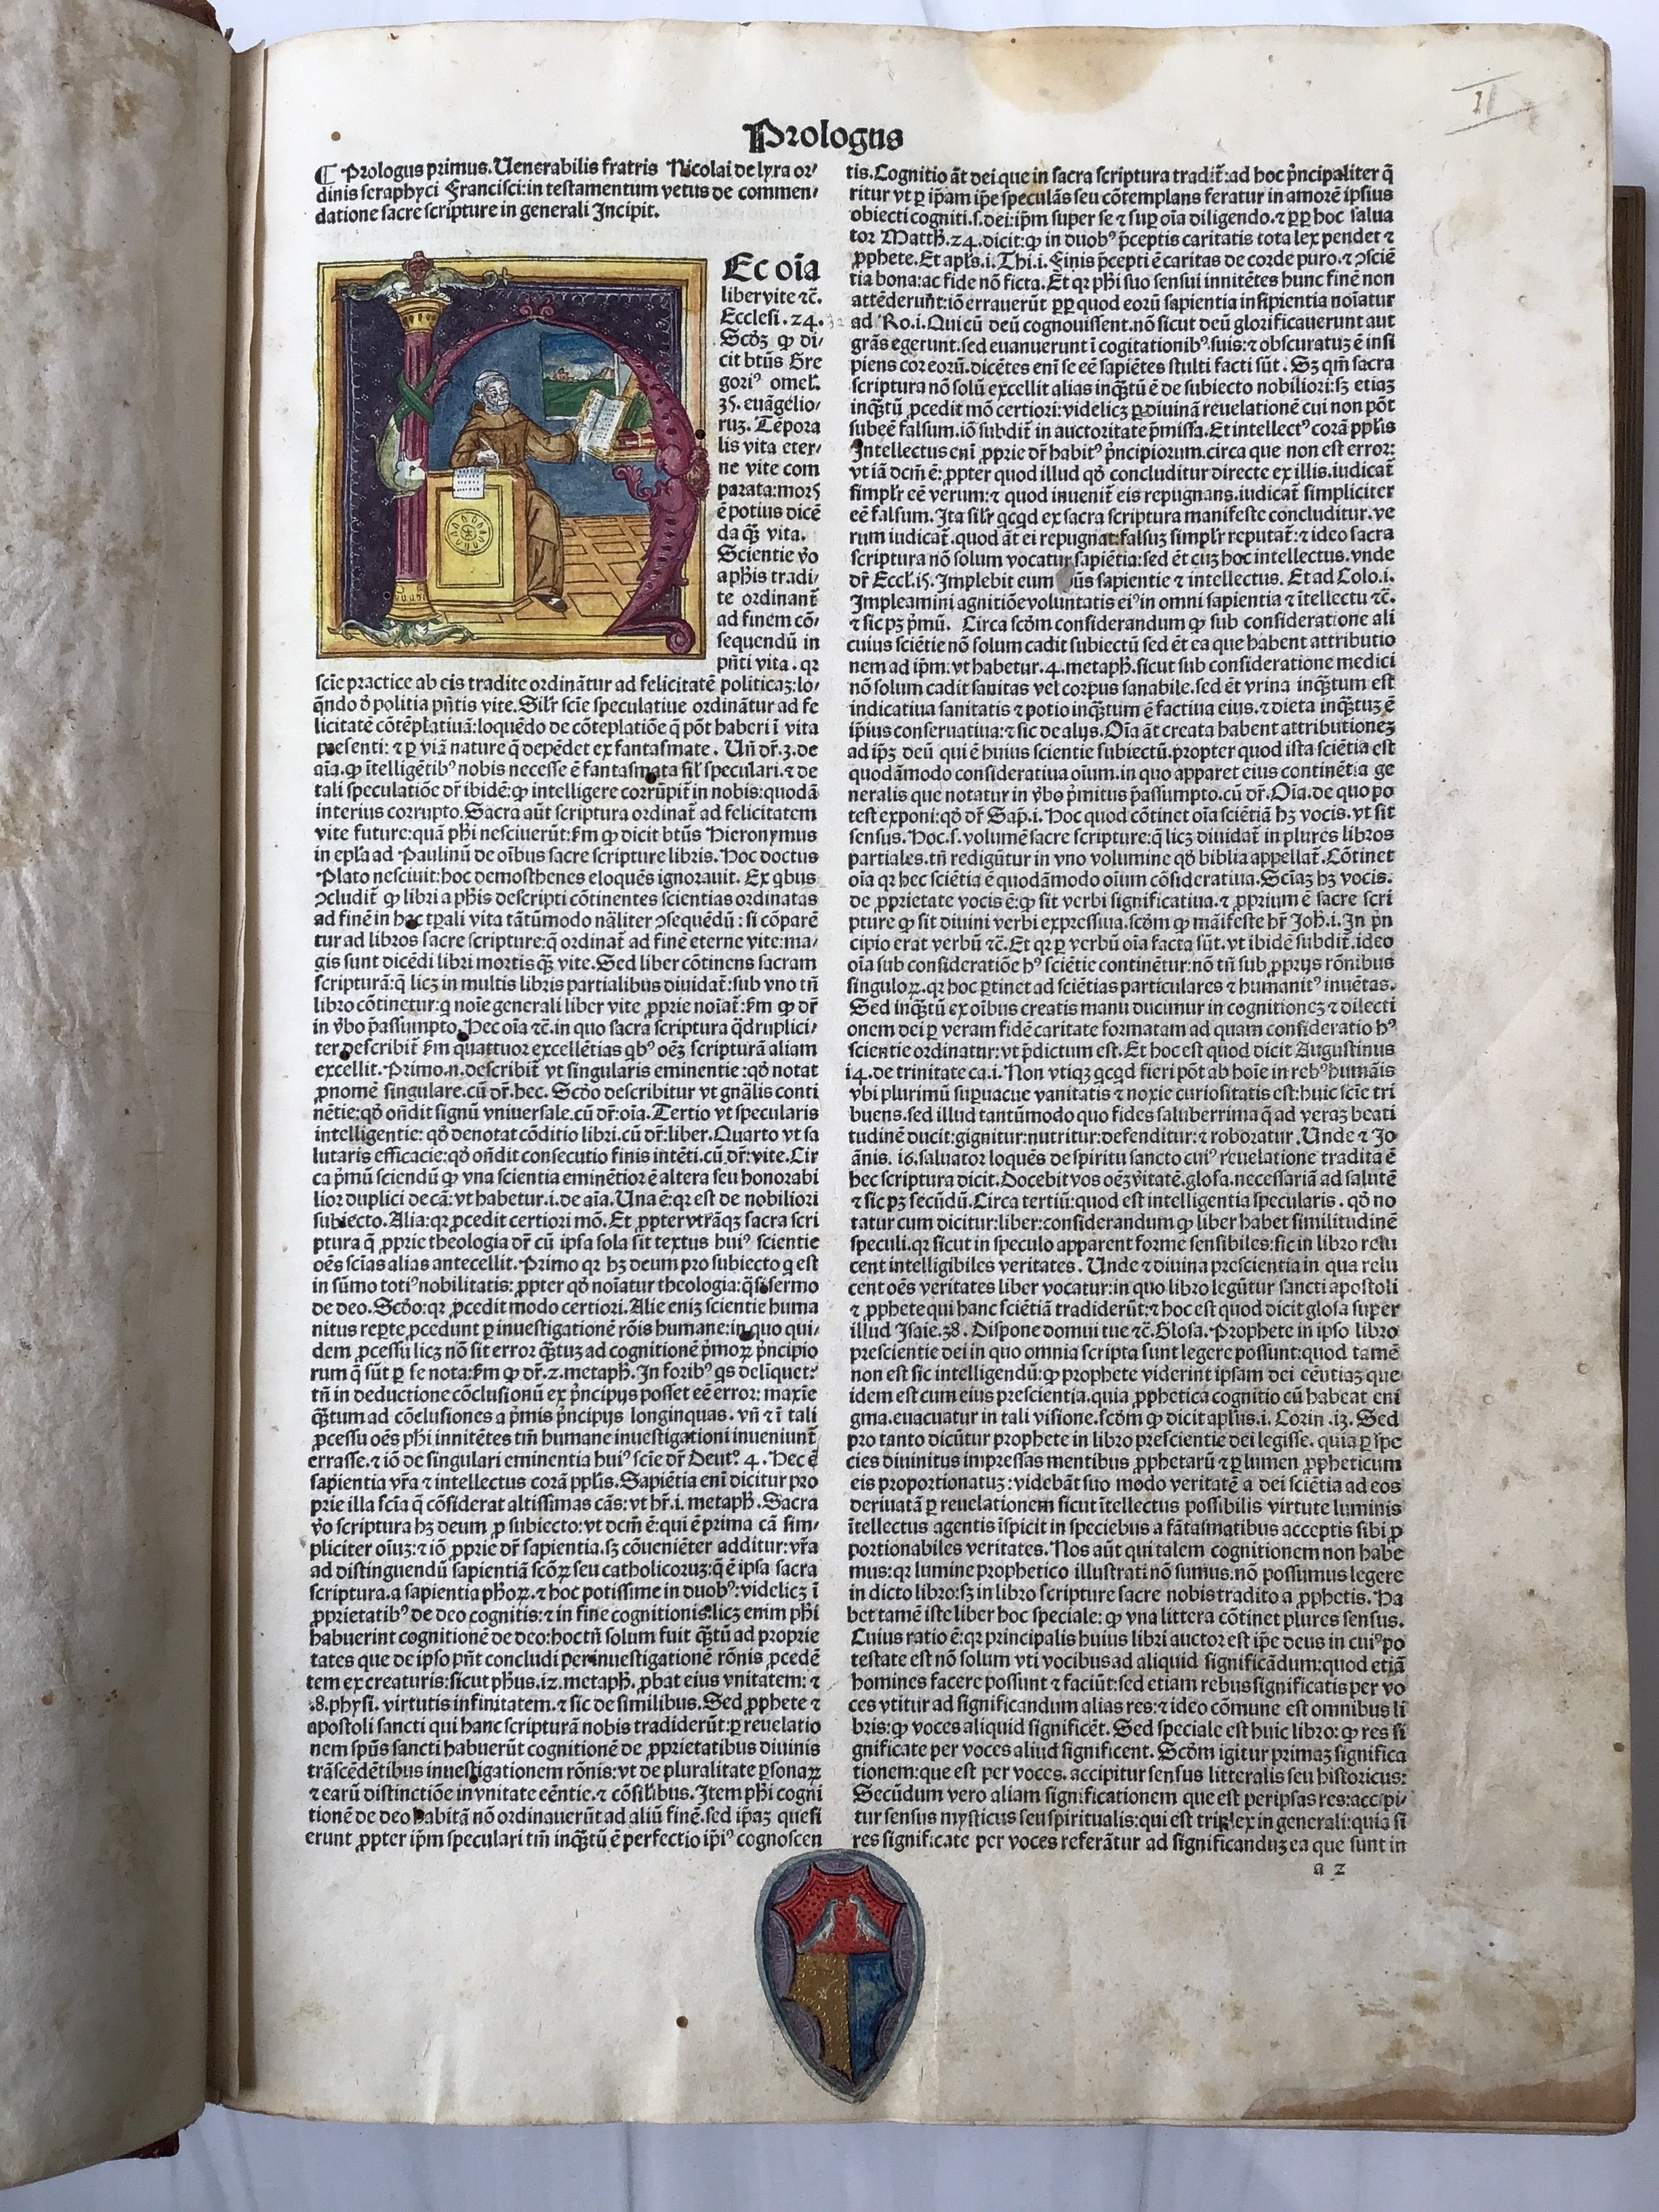 Prologus
¶ Prologus primus. Uenerabilis fratris Nicolai de lyra or⸗
dinis seraphyci Francisci: in testamentum vetus de commen⸗
datione sacre scripture in generali Incipit.
Ec oīa
liber vite ⁊c̄.
Ecclesi. 24.
Scd̄ꝫ ꝙ di⸗
cit btūs Gre
goriꝰ omel̄.
35. euāgelio⸗
ruꝫ. Tēpora
lis vita eter⸗
ne vite com
parata: mors
ē potius dicē
da q̄ꝫ vita.
Scientie v̄o
a ph̄is tradi⸗
te ordinant̄
ad finem cō⸗
sequendū in
pn̄ti vita. qꝛ
scīe practice ab eis tradite ordinātur ad felicitatē politicaꝫ: lo⸗
q̄ndo d̄ politia pn̄tis vite. Sil̄r scīe speculatiue ordinātur ad fe
licitatē cōtēplatiuā: loquēdo de cōteplatiōe q̄ pōt haberi ī vita
presenti: ⁊ ꝑ viā nature q̄ depēdet ex fantasmate. Un̄ dr̄. 3. de
aīa. ꝙ ītelligētibꝰ nobis necesse ē fantasmata sil̄ speculari. ⁊ de
tali speculatiōe dr̄ ibidē: ꝙ intelligere corrūpit̄ in nobis: quodā
interius corrupto. Sacra aūt scriptura ordinat̄ ad felicitatem
vite future: quā ph̄i nesciuerūt: s̄m ꝙ dicit btūs Hieronymus
in epl̄a ad Paulinū de oībus sacre scripture libris. Hoc doctus
Plato nesciuit: hoc demosthenes eloquēs ignorauit. Ex qbus
ꝯcludit̄ ꝙ libri a ph̄is descripti cōtinentes scientias ordinatas
ad finē in hac tp̄ali vita tātūmodo nāliter ꝯsequēdū: si cōparē
tur ad libros sacre scripture: q̄ ordinat̄ ad finē eterne vite: ma⸗
gis sunt dicēdi libri mortis q̄ꝫ vite. Sed liber cōtinens sacram
scripturā: q̄ licꝫ in multis libris partialibus diuidat̄: sub vno tn̄
libro cōtinetur: q noīe generali liber vite ꝓprie noīat̄: s̄m ꝙ dr̄
in v̄bo p̄assumpto. Hec oīa ⁊c̄. in quo sacra scriptura q̄druplici⸗
ter describit̄ s̄m quattuor excellētias qbꝰ oēꝫ scripturā aliam
excellit. Primo. n. describit̄ vt singularis eminentie: qd̄ notat
ꝓnomē singulare. cū dr̄. hec. Scd̄o describitur vt gn̄alis conti
nētie: qd̄ on̄dit signū vniuersale. cū dr̄: oīa. Tertio vt specularis
intelligentie: qd̄ denotat cōditio libri. cū dr̄: liber. Quarto vt sa
lutaris efficacie: qd̄ on̄dit consecutio finis intēti. cū dr̄: vite. Cir
ca p̄mū sciendū ꝙ vna scientia eminētior ē altera seu honorabi
lior duplici de cā: vt habetur. i. de aīa. Una ē: qꝛ est de nobiliori
subiecto. Alia: qꝛ ꝓcedit certiori mō. Et ꝓpter vtrāqꝫ sacra scri
ptura q̄ ꝓprie theologia dr̄ cū ipsa sola sit textus huiꝰ scientie
oēs scīas alias antecellit. Primo qꝛ hꝫ deum pro subiecto q est
in sūmo totiꝰ nobilitatis: ꝓpter qd̄ noīatur theologia: q̄si sermo
de deo. Scd̄o: qꝛ ꝓcedit modo certiori. Alie eniꝫ scientie huma
nitus reꝑte ꝓcedunt ꝑ inuestigationē rōis humane: in quo qui⸗
dem ꝓcessu licꝫ nō sit error q̄ꝫtuꝫ ad cognitionē p̄moꝝ p̄ncipio
rum q̄ sūt ꝑ se nota: s̄m ꝙ dr̄. 2. metaph̄. In foribꝰ qs deliquet?
tn̄ in deductione cōclusionū ex p̄ncipijs posset eē error: maxīe
q̄ꝫtum ad cōclusiones a p̄mis p̄ncipijs longinquas. vn̄ ⁊ ī tali
ꝓcessu oēs ph̄i innitētes tm̄ humane inuestigationi inueniunt̄
errasse. ⁊ iō de singulari eminentia huiꝰ scīe dr̄ Deut°. 4. Hec ē
sapientia vr̄a ⁊ intellectus corā ppl̄is. Sapiētia enī dicitur pro
prie illa scīa q̄ cōsiderat altissimas cās: vt hr̄. i. metaph̄. Sacra
v̄o scriptura hꝫ deum ꝓ subiecto: vt dcm̄ ē: qui ē prima cā sim⸗
pliciter oīuꝫ: ⁊ iō ꝓprie dr̄ sapientia. sꝫ cōueniēter additur: vr̄a
ad distinguendū sapientiā scōꝝ seu catholicoruꝫ: q̄ ē ipsa sacra
scriptura. a sapientia ph̄oꝝ. ⁊ hoc potissime in duobꝰ: videlicꝫ ī
ꝓprietatibꝰ de deo cognitis: ⁊ in fine cognitionis. licꝫ enim ph̄i
habuerint cognitionē de deo: hoc tn̄ solum fuit q̄ꝫtū ad proprie
tates que de ipso pn̄t concludi per inuestigationē rōnis ꝓcedē
tem ex creaturis: sicut ph̄us. 12. metaph̄. ꝓbat eius vnitatem: ⁊
.8. physi. virtutis infinitatem. ⁊ sic de similibus. Sed ꝓphete ⁊
apostoli sancti qui hanc scripturā nobis tradiderūt: ꝑ reuelatio
nem spūs sancti habuerūt cognitionē de ꝓprietatibus diuinis
trāscēdētibus inuestigationem rōnis: vt de pluralitate ꝑsonaꝝ
⁊ earū distinctiōe in vnitate eēntie. ⁊ cōsil̄ibus. Item ph̄i cogni
tionē de deo habitā nō ordinauerūt ad aliū finē. sed ip̄aꝫ quesi
erunt ꝓpter ip̄m speculari tm̄ inq̄ꝫtū ē perfectio ip̄iꝰ cognoscen
tis. Cognitio āt dei que in sacra scriptura tradit̄: ad hoc p̄ncipaliter q̄
ritur vt ꝑ ip̄am ip̄e speculās seu cōtemplans feratur in amorē ipsius
obiecti cogniti. s. dei: ip̄m super se ⁊ suꝑ oīa diligendo. ⁊ ꝓꝑ hoc salua
tor Matth̄. 24. dicit: ꝙ in duobꝰ p̄ceptis caritatis tota lex pendet ⁊
ꝓphete. Et apl̄s. i. Thi. i. Finis p̄cepti ē caritas de corde puro. ⁊ ꝯsciē
tia bona: ac fide nō ficta. Et qꝛ ph̄i suo sensui innitētes hunc finē non
attēderunt: iō errauerūt ꝓꝑ quod eorū sapientia insipientia noīatur
ad Ro. i. Qui cū deū cognouissent. nō sicut deū glorificauerunt aut
grās egerunt. sed euanuerunt ī cogitationibꝰ suis: ⁊ obscuratuꝫ ē insi
piens cor eorū. dicētes enī se eē sapiētes stulti facti sūt. Sꝫ qm̄ sacra
scriptura nō solū excellit alias inq̄ꝫtū ē de subiecto nobiliori: sꝫ etiaꝫ
inq̄ꝫtū ꝓcedit mō certiori: videlicꝫ ꝑ diuinā reuelationē cui non pōt
subeē falsum. iō subdit̄ in auctoritate p̄missa. Et intellectꝰ corā ppl̄is
Intellectus enī ꝓprie dr̄ habitꝰ p̄ncipiorum. circa que non est error:
vt iā dcm̄ ē: ꝓpter quod illud qd̄ concluditur directe ex illis. iudicat̄
simpl̄r eē verum: ⁊ quod inuenit̄ eis repugnans. iudicat̄ simpliciter
eē falsum. Ita sil̄r qcqd ex sacra scriptura manifeste concluditur. ve
rum iudicat̄. quod āt ei repugnat: falsuꝫ simpl̄r reputat̄: ⁊ ideo sacra
scriptura nō solum vocatur sapiētia: sed ēt cuꝫ hoc intellectus. vnde
dr̄ Eccl̄. 15. Implebit eum ūs sapientie ⁊ intellectus. Et ad Colo. i.
Impleamini agnitiōe voluntatis eiꝰ in omni sapientia ⁊ ītellectu ⁊c̄.
⁊ sic pꝫ p̄mū. Circa scd̄m considerandum ꝙ sub consideratione ali
cuius sciētie nō solum cadit subiectū sed ēt ea que habent attributio
nem ad ip̄m. vt habetur. 4. metaph̄. sicut sub consideratione medici
nō solum cadit sanitas vel corpus sanabile. sed ēt vrina inq̄ꝫtum est
indicatiua sanitatis ⁊ potio inq̄ꝫtum ē factiua eius. ⁊ dieta inq̄ꝫtuꝫ ē
ip̄ius conseruatiua: ⁊ sic de alijs. Oīa āt creata habent attributioneꝫ
ad ip̄ꝫ deū qui ē huius scientie subiectū. propter quod ista sciētia est
quodāmodo consideratiua oīum. in quo apparet eius continētia ge
neralis que notatur in v̄bo p̄mitus p̄assumpto. cū dr̄. Oīa. de quo po
test exponi: qd̄ dr̄ Sap̄. i. Hoc quod cōtinet oīa sciētiā hꝫ vocis. vt sit
sensus. Hoc. s. volumē sacre scripture: q̄ licꝫ diuidat̄ in plures libros
partiales. tn̄ redigūtur in vno volumine qd̄ biblia appellat̄. Cōtinet
oīa qꝛ hec sciētia ē quodāmodo oīum cōsideratiua. Scīaꝫ hꝫ vocis.
de ꝓprietate vocis ē: ꝙ sit verbi significatiua. ⁊ ꝓprium ē sacre scri
pture ꝙ sit diuini verbi expressiua. scd̄m ꝙ māifeste hr̄ Joh̄. i. In p̄n
cipio erat verbū ⁊c̄. Et qꝛ ꝑ verbū oīa facta sūt. vt ibidē subdit̄. ideo
oīa sub consideratiōe hꝰ sciētie continētur: nō tn̄ sub ꝓprijs rōnibus
singuloꝝ. qꝛ hoc ꝑtinet ad sciētias particulares ⁊ humanitꝰ inuētas.
Sed inq̄ꝫtū ex oībus creatis manu ducimur in cognitioneꝫ ⁊ dilecti
onem dei ꝑ veram fidē caritate formatam ad quam consideratio hꝰ
scientie ordinatur: vt p̄dictum est. Et hoc est quod dicit Augustinus
14. de trinitate ca. i. Non vtiqꝫ qcqd fieri pōt ab hoīe in rebꝰ humāis
vbi plurimū suꝑuacue vanitatis ⁊ noxie curiositatis est: huic scīe tri
buens. sed illud tantūmodo quo fides saluberrima q̄ ad veraꝫ beati
tudinē ducit: gignitur: nutritur: defenditur: ⁊ roboratur. Unde ⁊ Jo
ānis. 16. saluator loquēs de spiritu sancto cuiꝰ reuelatione tradita ē
hec scriptura dicit. Docebit vos oēꝫ v̄itatē. glosa. necessariā ad salutē
⁊ sic pꝫ secūdū. Circa tertiū: quod est intelligentia specularis. qd̄ no
tatur cum dicitur: liber: considerandum ꝙ liber habet similitudinē
speculi. qꝛ sicut in speculo apparent forme sensibiles: sic in libro relu
cent intelligibiles veritates. Unde ⁊ diuina prescientia in qua relu
cent oēs veritates liber vocatur: in quo libro legūtur sancti apostoli
⁊ ꝓphete qui hanc sciētiā tradiderūt: ⁊ hoc est quod dicit glosa super
illud Isaie. 38. Dispone domui tue ⁊c̄. Glosa. Prophete in ipso libro
prescientie dei in quo omnia scripta sunt legere possunt: quod tamē
non est sic intelligendū: ꝙ prophete viderint ipsam dei cēntiaꝫ que
idem est cum eius prescientia. quia ꝓphetica cognitio cū habeat eni
gma. euacuatur in tali visione. scd̄m ꝙ dicit apl̄us. i. Corin. 13. Sed
pro tanto dicūtur prophete in libro prescientie dei legisse. quia ꝑ spe
cies diuinitus impressas mentibus ꝓphetarū ⁊ ꝑ lumen ꝓpheticum
eis proportionatuꝫ: videbāt suo modo veritatē a dei sciētia ad eos
deriuatā ꝑ reuelationem sicut ītellectus possibilis virtute luminis
ītellectus agentis īspicit in speciebus a fātasmatibus acceptis sibi ꝓ
portionabiles veritates. Nos aūt qui talem cognitionem non habe
mus: qꝛ lumine prophetico illustrati nō sumus. nō possumus legere
in dicto libro: sꝫ in libro scripture sacre nobis tradito a ꝓphetis. Ha
bet tamē iste liber hoc speciale: ꝙ vna littera cōtinet plures sensus.
Cuius ratio ē: qꝛ principalis huius libri auctor est ip̄e deus in cuiꝰ po
testate est nō solum vti vocibus ad aliquid significādum: quod etiā
homines facere possunt ⁊ faciūt: sed etiam rebus significatis per vo
ces vtitur ad significandum alias res: ⁊ ideo cōmune est omnibus li
bris: ꝙ voces aliquid significēt. Sed speciale est huic libro: ꝙ res si
gnificate per voces aliud significent. Scd̄m igitur primaꝫ significa
tionem: que est per voces. accipitur sensus litteralis seu historicus:
Secūdum vero aliam significationem que est per ipsas res: accipi⸗
tur sensus mysticus seu spiritualis: qui est triplex in generali: quia si
res significate per voces referātur ad significanduꝫ ea que sunt in
a 2